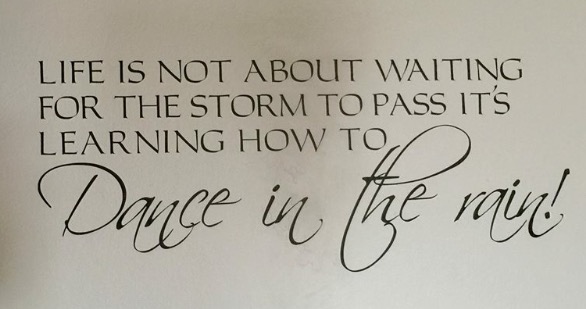 LIFE IS NOT ABOUT WAITING
FOR THE STORM TO PASS IT'S
LEARNING HOW TO
Dance in the rain!